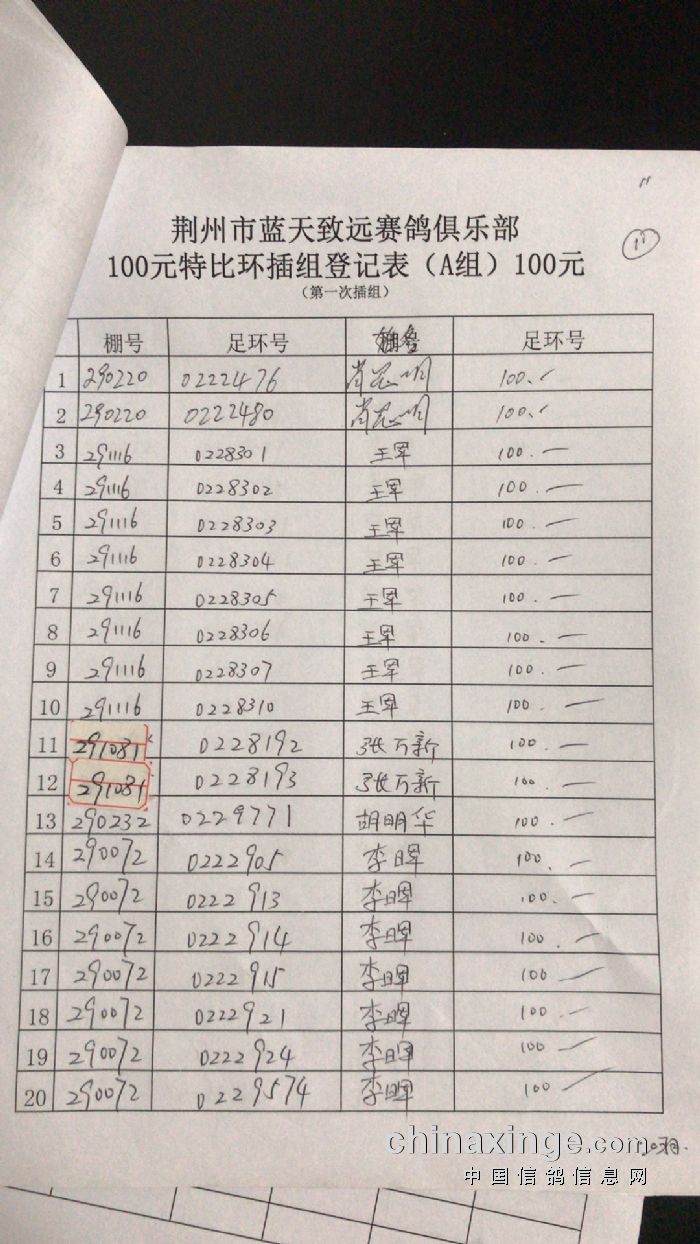 11
11
荆州市蓝天致远赛鸽俱乐部
100元特比环插组登记表（A组）100元
（第一次插组）
棚号 足环号 足环号
1 290220 0222476 100.
2 290220 0222480 100.
3 291116 0228301 王军 100.
4 29116 0228302 王军 100.
5 291116 0228303 王军 100.
6 29116 0228304 王军 100.
7 291116 0228305 王军 100.
8 291116 0228306 王军 100.
9 291116 0228307 王军 100.
10 291116 0228310 王军 100.
11 291081 0228192 张万新 100.
12 291081 0228193 张万新 100.
13 290232 0229771 胡明华 100.
14 290072 0222905 李晖 100.
15 290072 0222913 李晖 100.
16 290072 0222914 李晖 100.
17 290072 0222915 李晖 100
18 290072 0222921 李晖 100.
19 290072 0222924 李晖 100
20 290072 0229574 李晖 100
chinaxinge.com
中国信鸽信息网